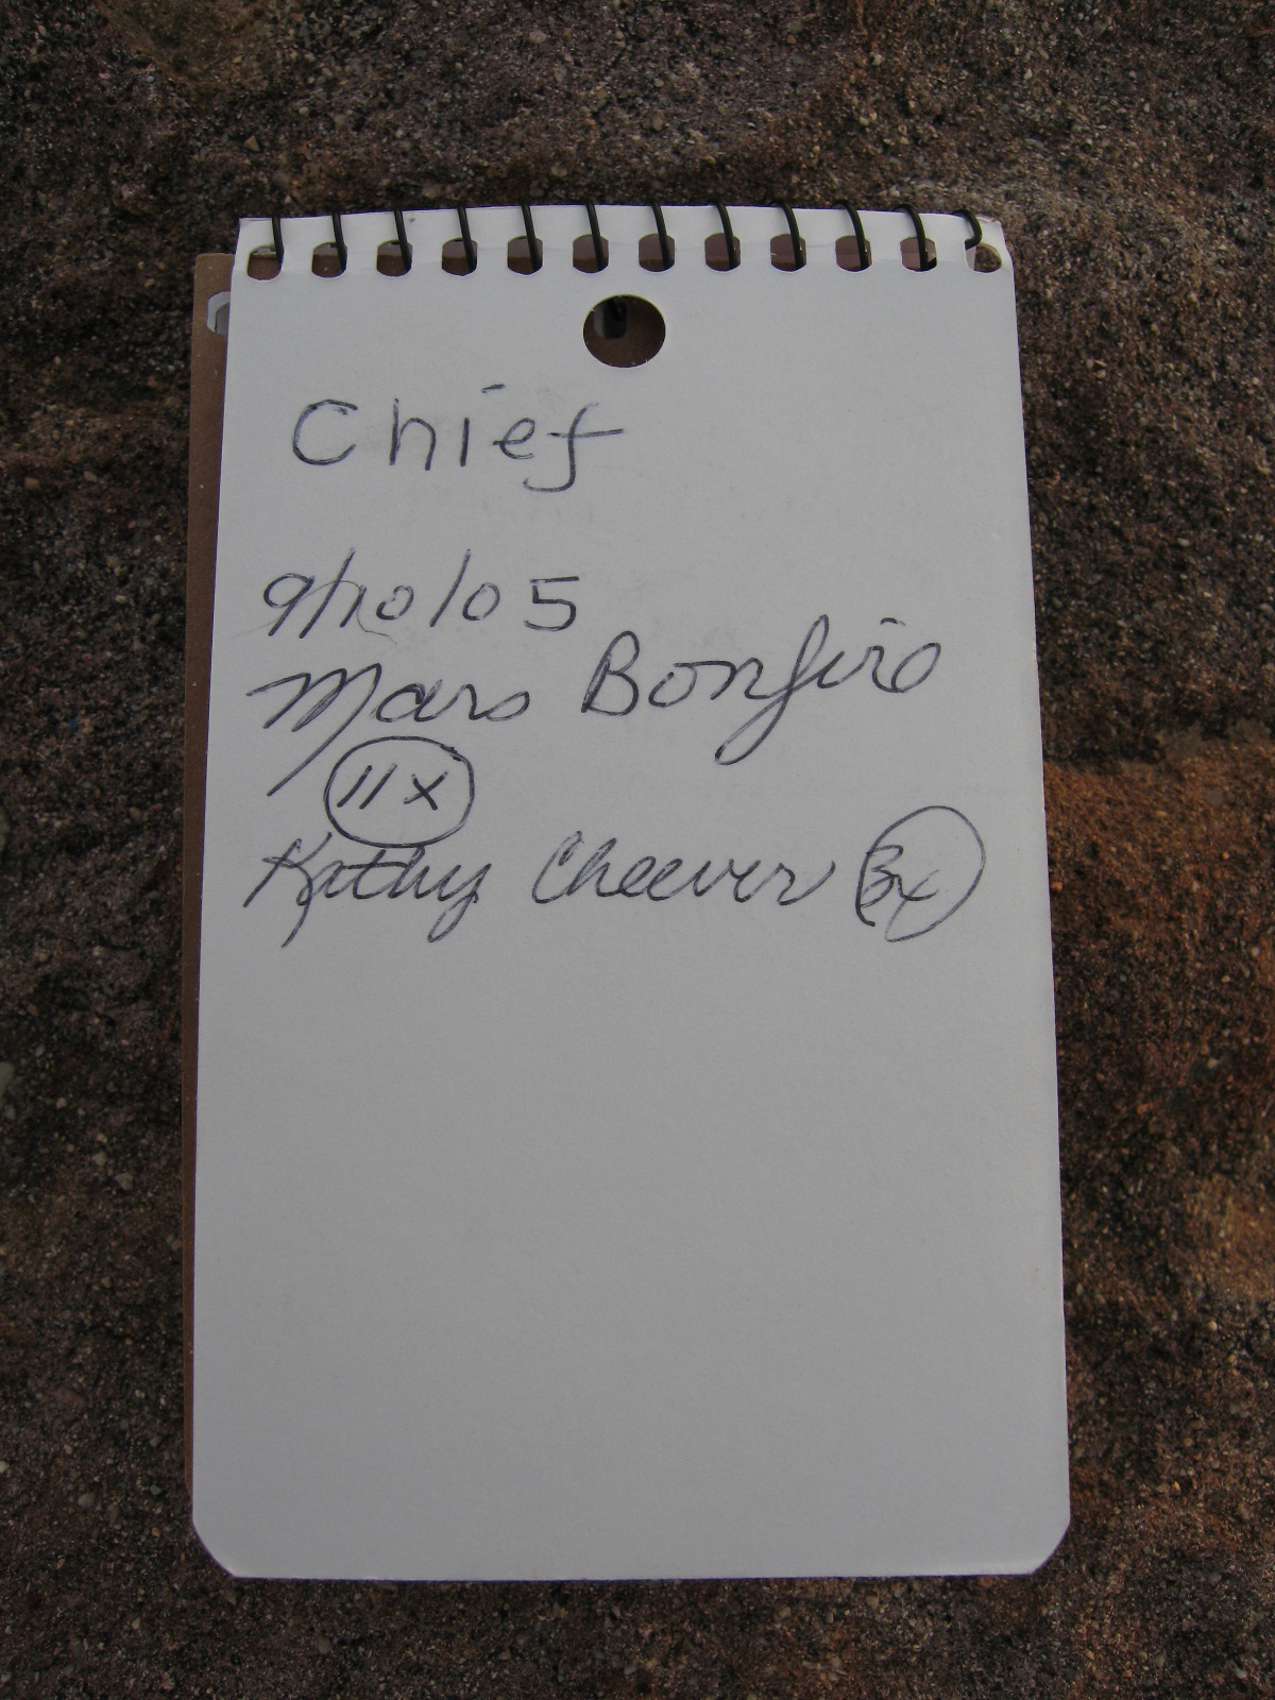 Chief
9/10/05
Mars Bonfire
11x
Kathy Cheever 3x